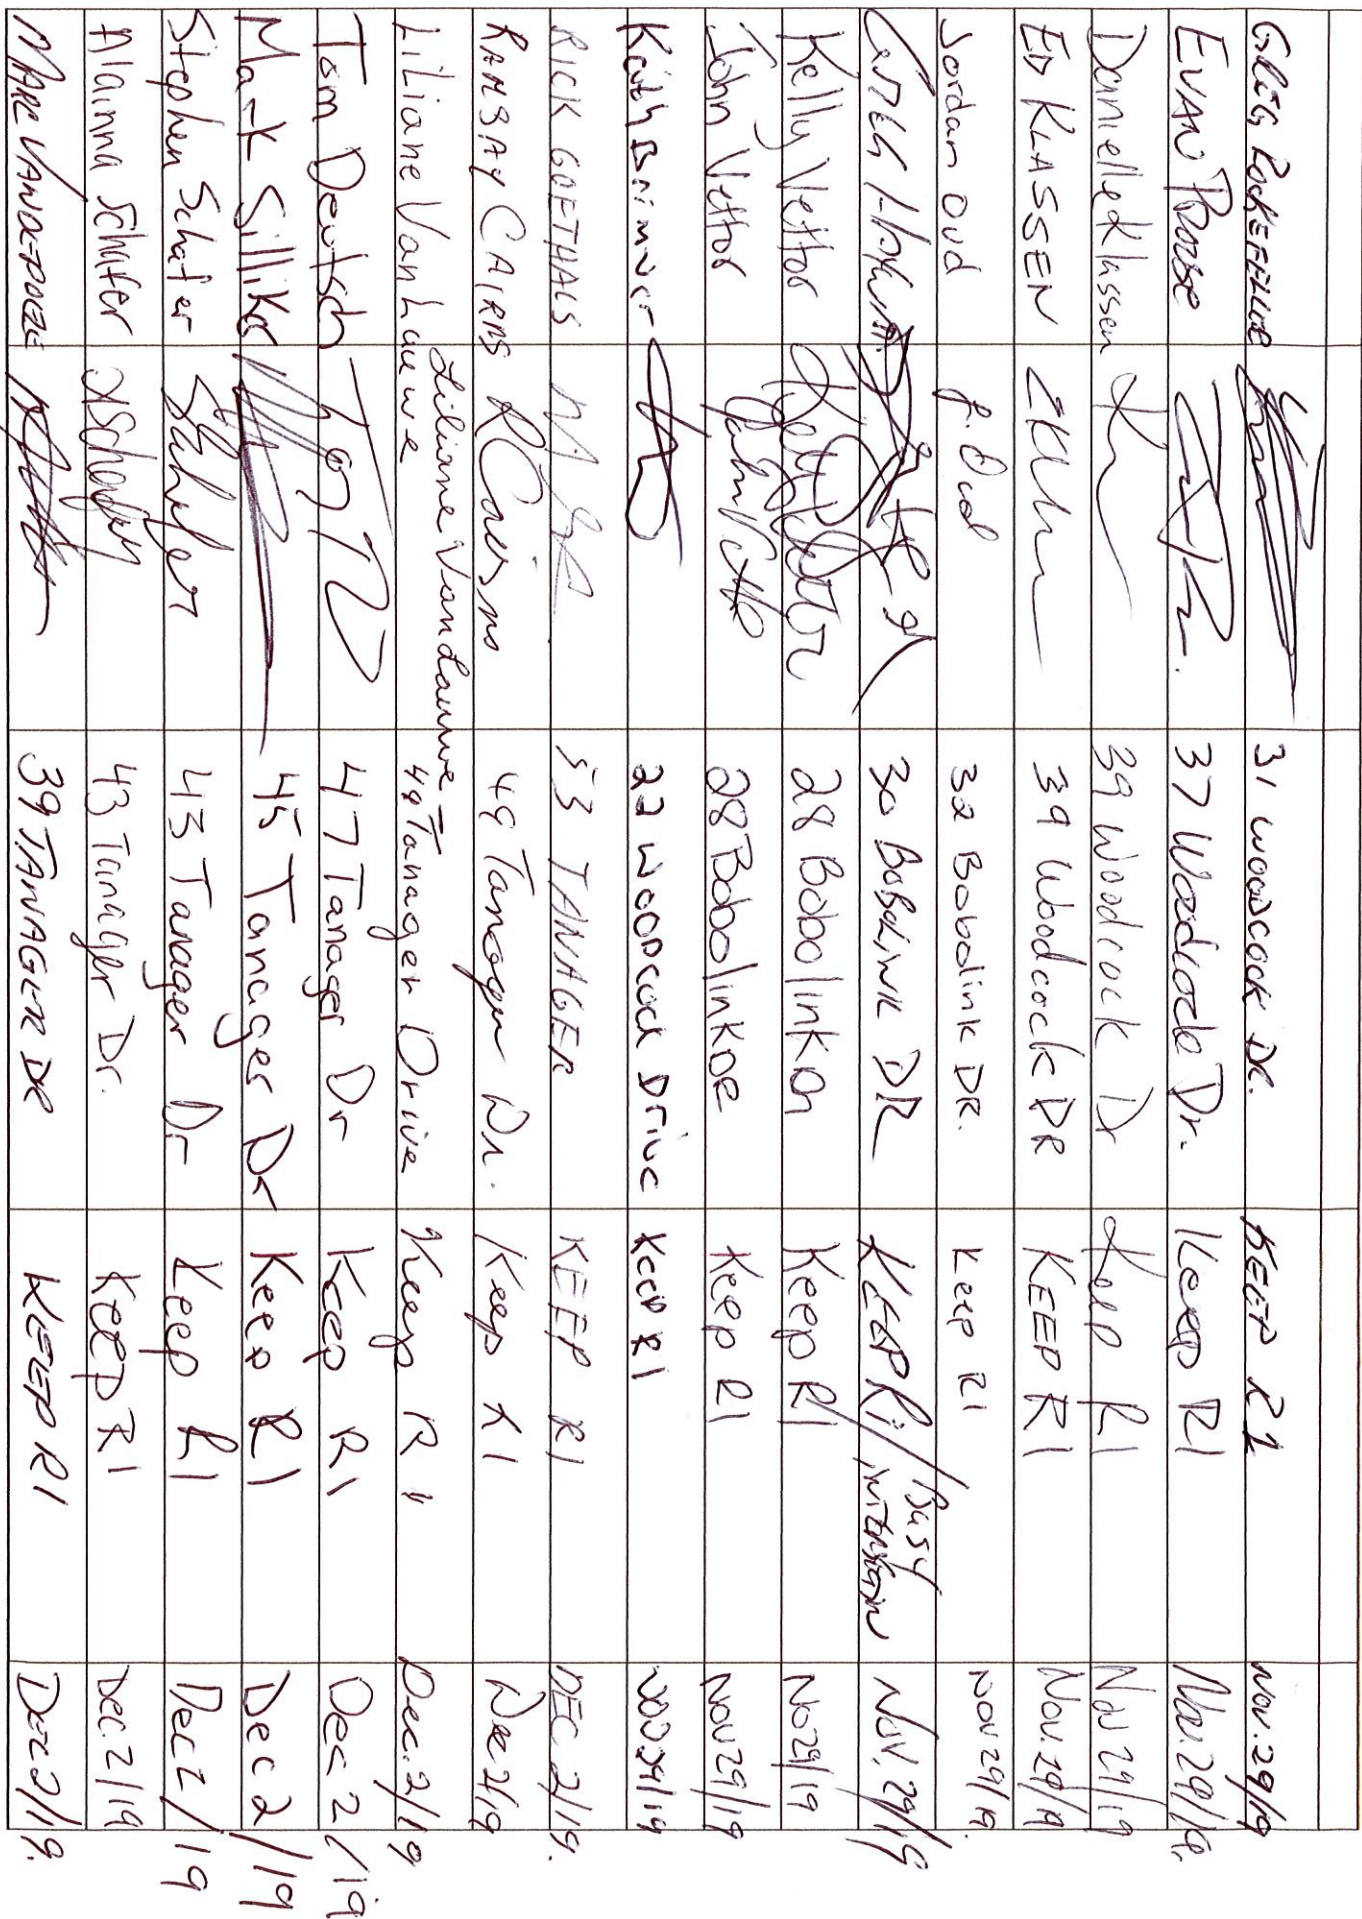 31 WOODCOCK DR. KEEP R1 NOV. 29/19
EVAN 37 Woodcock Dr. Keep R1 Nov. 29/19.
Danielle Klassen 39 Woodcock Dr Keep R1 Nov 29/19
ED KLASSEN 39 Woodcock DR KEEP R1 Nov. 29/19
Jordan Oud J. Oud 32 Bobolink DR. Keep R1 Nov 29/19.
30 BOBOLINK DR KEEP R1/ Busy intersection Nov. 29/19
Kelly Vettor 28 Bobolink Dr Keep R1 Nov 29/19
John Vettor 28 Bobolink DR Keep R1 Nov 29/19
Keith 22 WOODCOCK Drive Keep R1 Nov 29/19
RICK GOETHALS 53 TANAGER KEEP R1 DEC 2/19.
RAMSAY CAIRNS R Cairns 49 Tanager Dr. Keep R1 Dec 2/19
Liliane VanLauwe 49 Tanager Drive Keep R 1 Dec. 2/19
Tom Deutsch 47 Tanager Dr Keep R1 Dec 2/19
Mark 45 Tanager Dr Keep R1 Dec 2/19
Stephen Schafer Schafer 43 Tanager Dr Keep R1 Dec 2/19
Alainna Schafer ASchafer 43 Tanager Dr. Keep R1 Dec. 2/19
MARC 39 TANAGER DR KEEP R1 DEC 2/19.